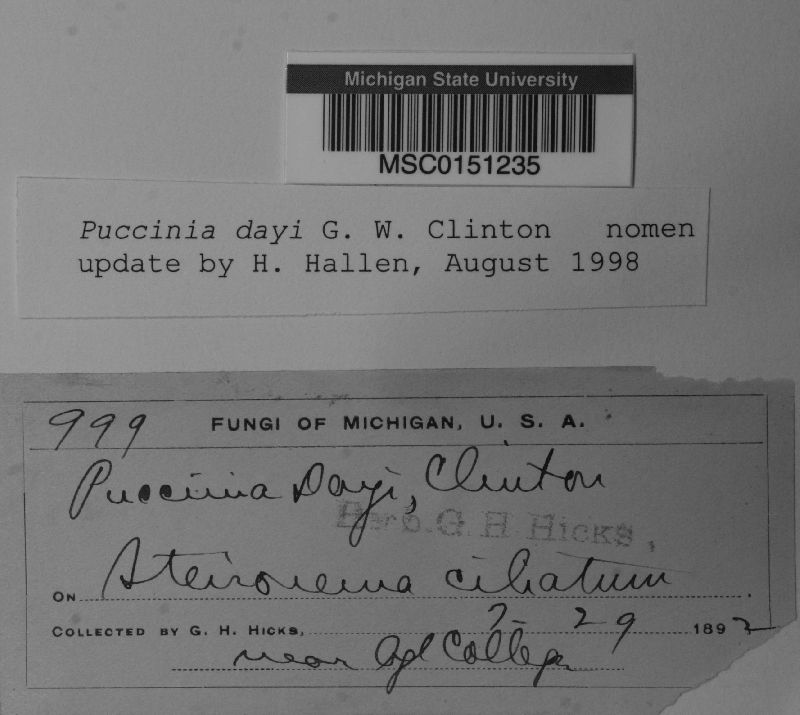 Michigan State University
MSC0151235
Puccinia dayi G. W. Clinton nomen
update by H. Hallen, August 1998
999 FUNGI OF MICHIGAN, U. S. A.
Puccinia Dayi, Clinton
Herb. G H HICKS,
ON Steironema ciliatum
COLLECTED BY G. H. HICKS, 7- 29 1892
near Agl College